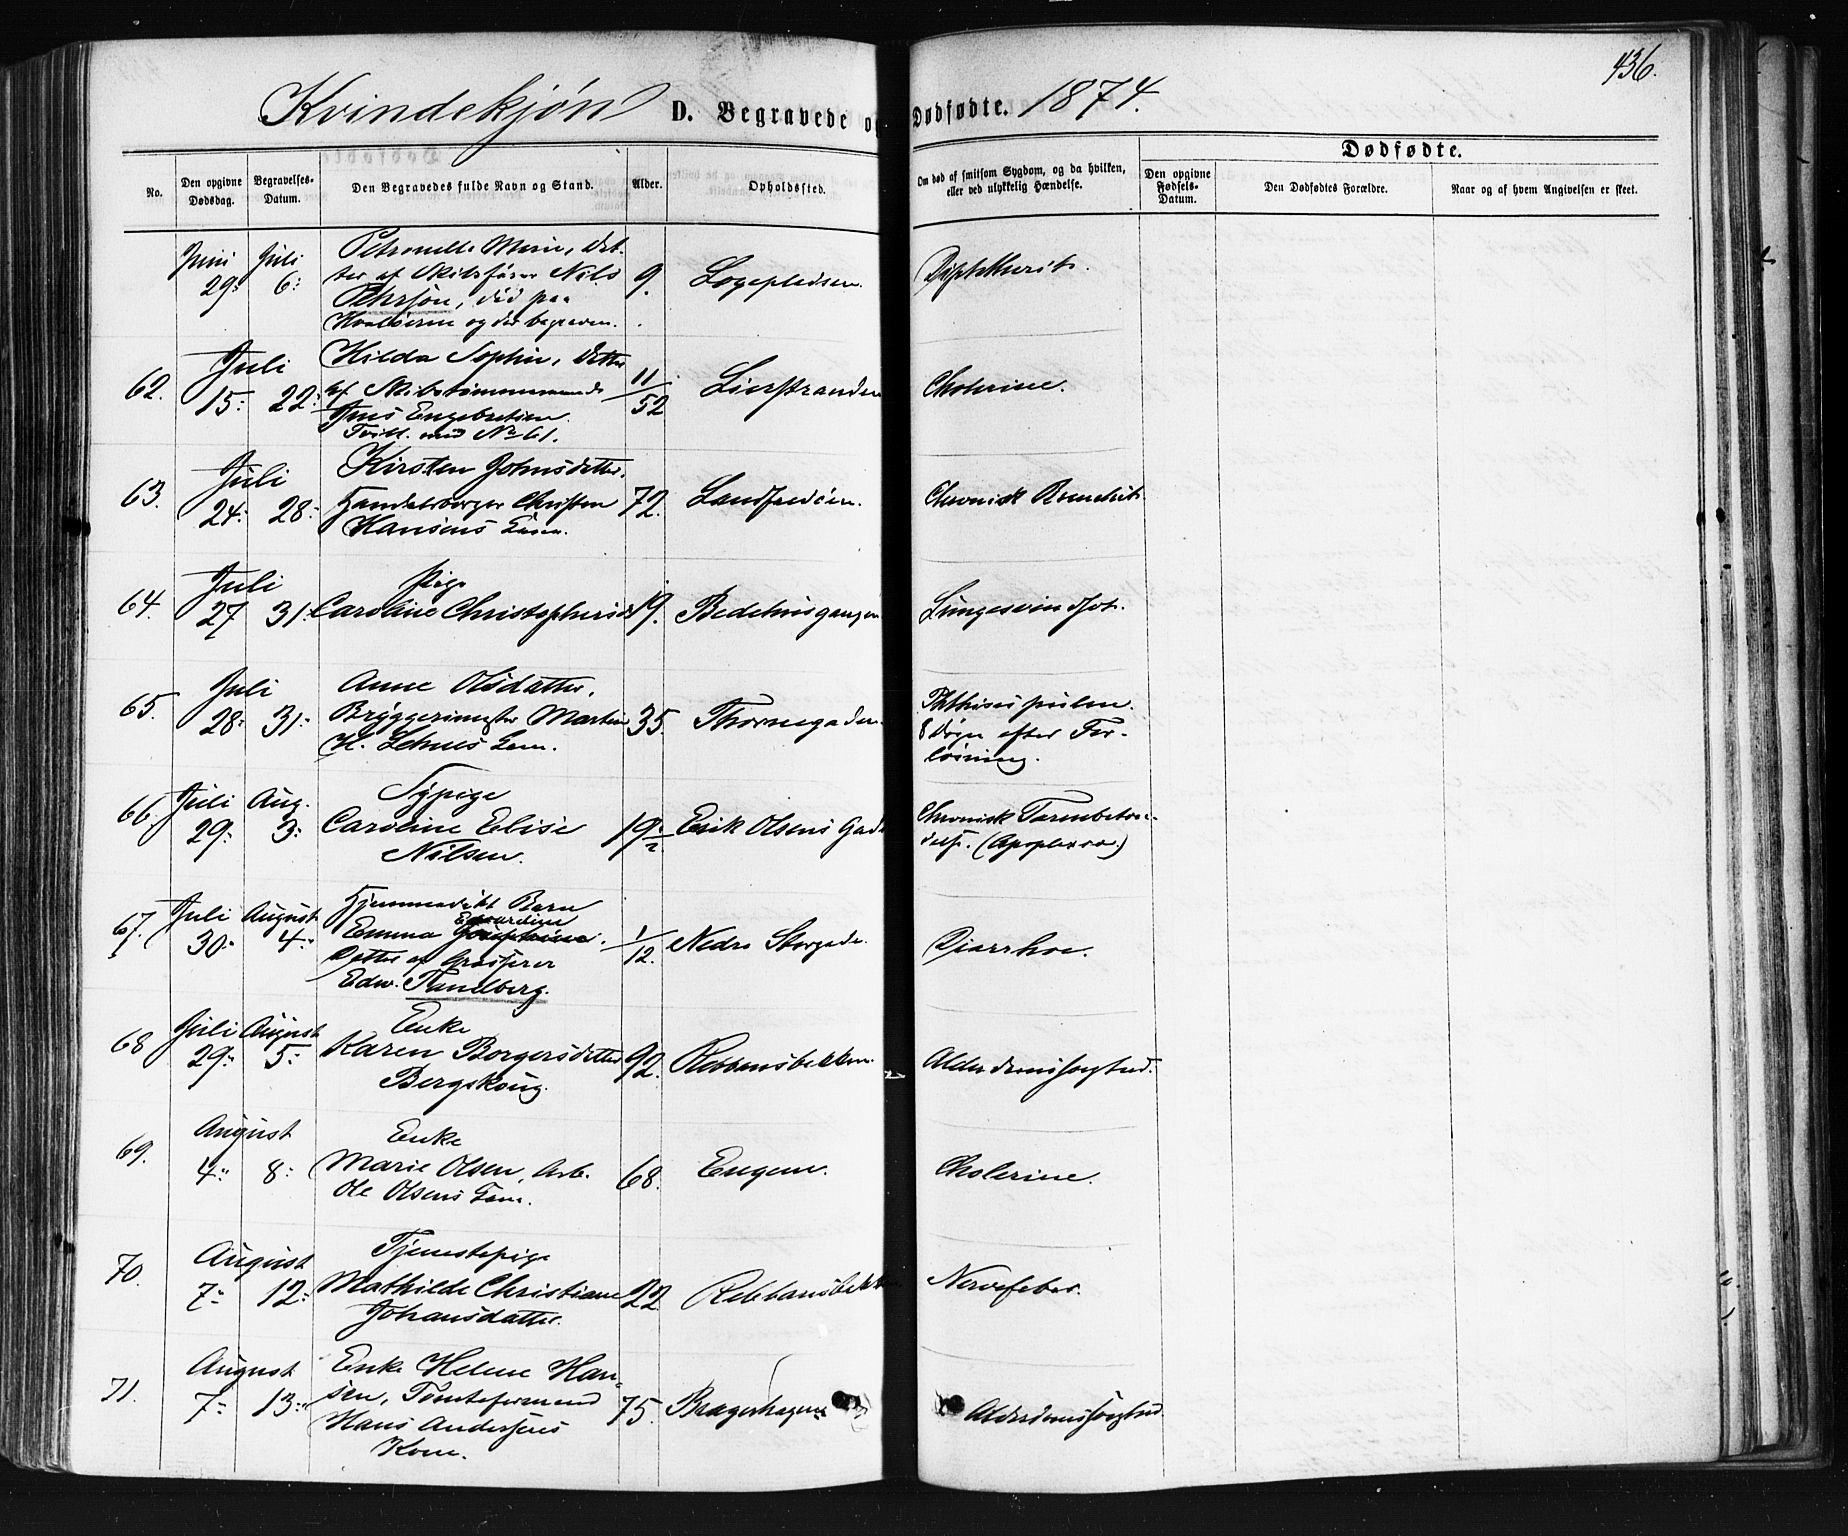 Kvindekjøn D. Begravede og Dødfødte. 1874. 436.
No.
Den opgivne Dødsdag.
Begravelses-Datum.
Den Begravedes fulde Navn og Stand.
Alder.
Opholdssted.
Om død af smitsom Sygdom, og da hvilken,
eller ved ulykkelig Hændelse.
Dødfødte.
Den opgivne Fødsels-Datum.
Den Dødfødtes Forældre.
Naar og af hvem Angivelsen er skeet.
Juni Juli Petronelle Marie, Dat-
29: 6: ter af Skibsfører Nils 9. Løgepladsen. Diphtherit.
Pehrson, død paa
Hvaløerne og der begraven.
Juli Hilda Sophie, Datter
62. 15: 22: af Skibstømmermand 11/52 Lierstranden Cholerine.
Jens Engebretsen
Tvill. med No 61.
Juli Kirsten Johnsdatter,
63. 24: 28: Handelsborger Christen 72. Landfaløen. Chronisk Bronchit.
Hansens
Juli Pige
64. 27 31: Caroline 19. Bedehusgangen Lungesvindsot.
Juli Anne Olsdatter,
65. 28: 31: Bryggerimester Martin 35. Thornegaden. Phthisis pulm.
H. Lehnes 8 Døgn efter For-
løsning.
Juli Aug. Sypige
66. 29: 3: Caroline Elise 19 Erik Olsens Gade Chronisk Tarmbetæn-
Nilsen. delse.
Juli August Hjemmedøbt Barn
67. 30: 4: Emma Edvardine 1/12. Nedre Storgade. Diarrhoe.
Datter af Grosserer
Edw. Tandberg.
Juli August Enke
68 29: 5: Karen Borgersdatter 92. Rebbansbakken. Alderdomssvaghed.
Bergskoug.
August Enke
69. 4: 8: Marie Olsen, Arb. 68. Engene. Cholerine.
Ole Olsens
August Tjenestepige
70. 7: 12: Mathilde Christiane 22 Rebbansbakken Nervefeber.
Johansdatter.
August Enke Helene Han-
71. 7: 13: sen, Tomteformand 75. Bragerhagen Alderdomssvaghed.
Hans Andersens
Kone.